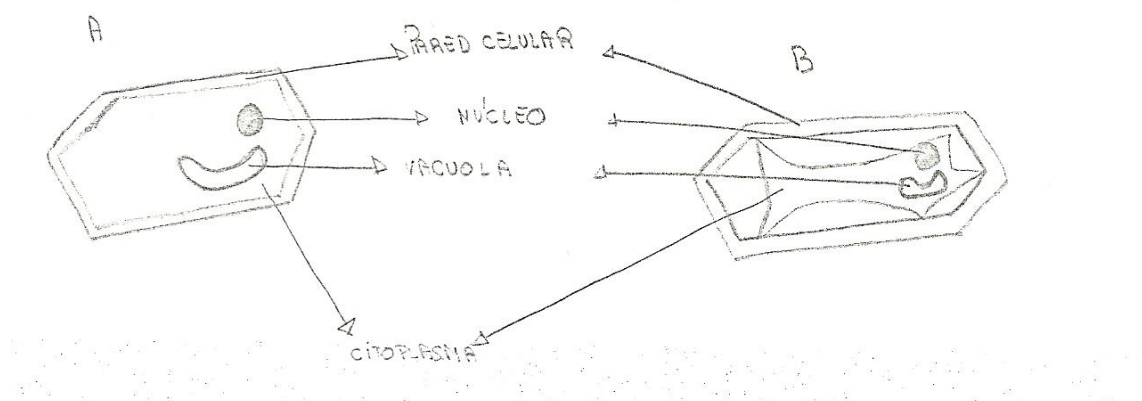 A
PARED CELULAR
B
NÚCLEO
VACUOLA
CITOPLASMA